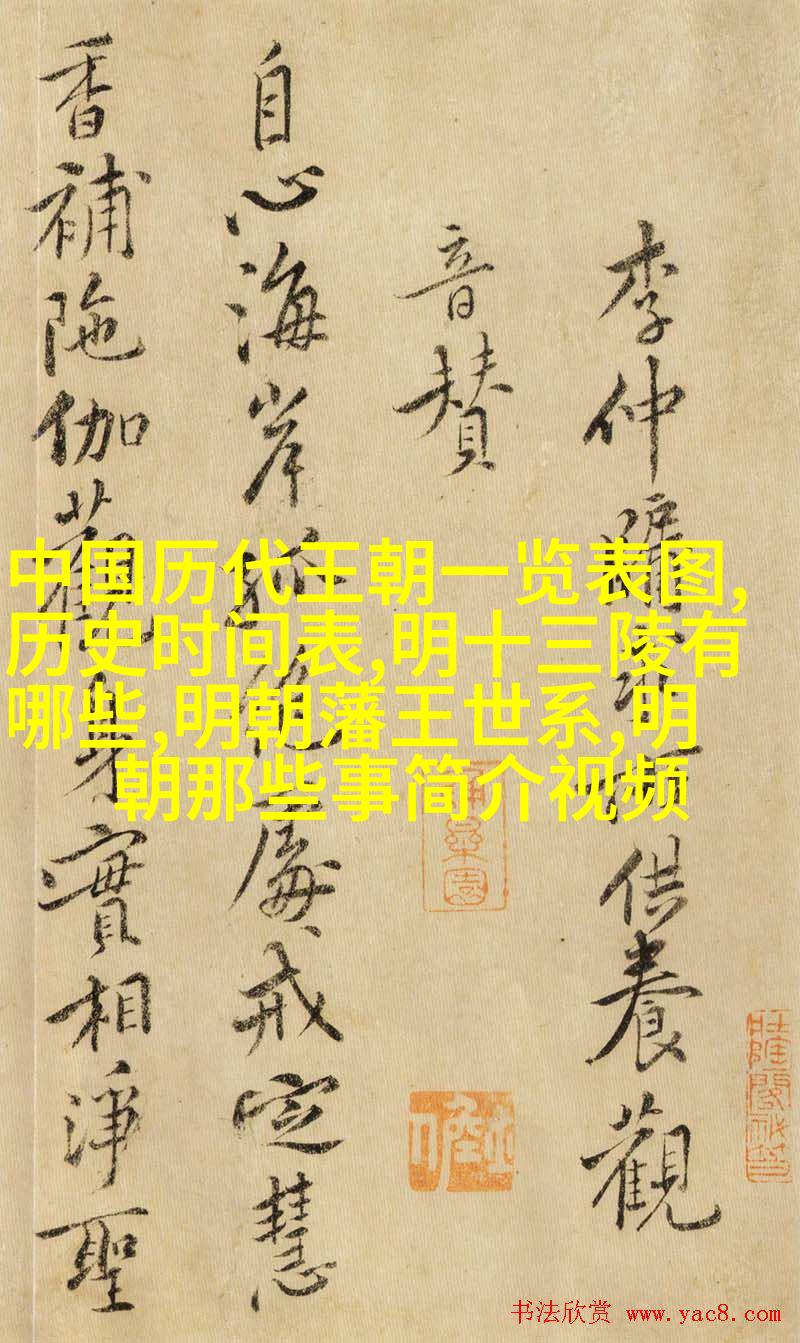 李仲供養觀
音贊
自心海岸孤絕處戒定慧
香補陁伽觀身實相淨聖
中国历代王朝一览表图,
历史时间表,明十三陵有
哪些,明朝藩王世系,明
朝那些事简介视频
书法欣赏 www.yac8.com